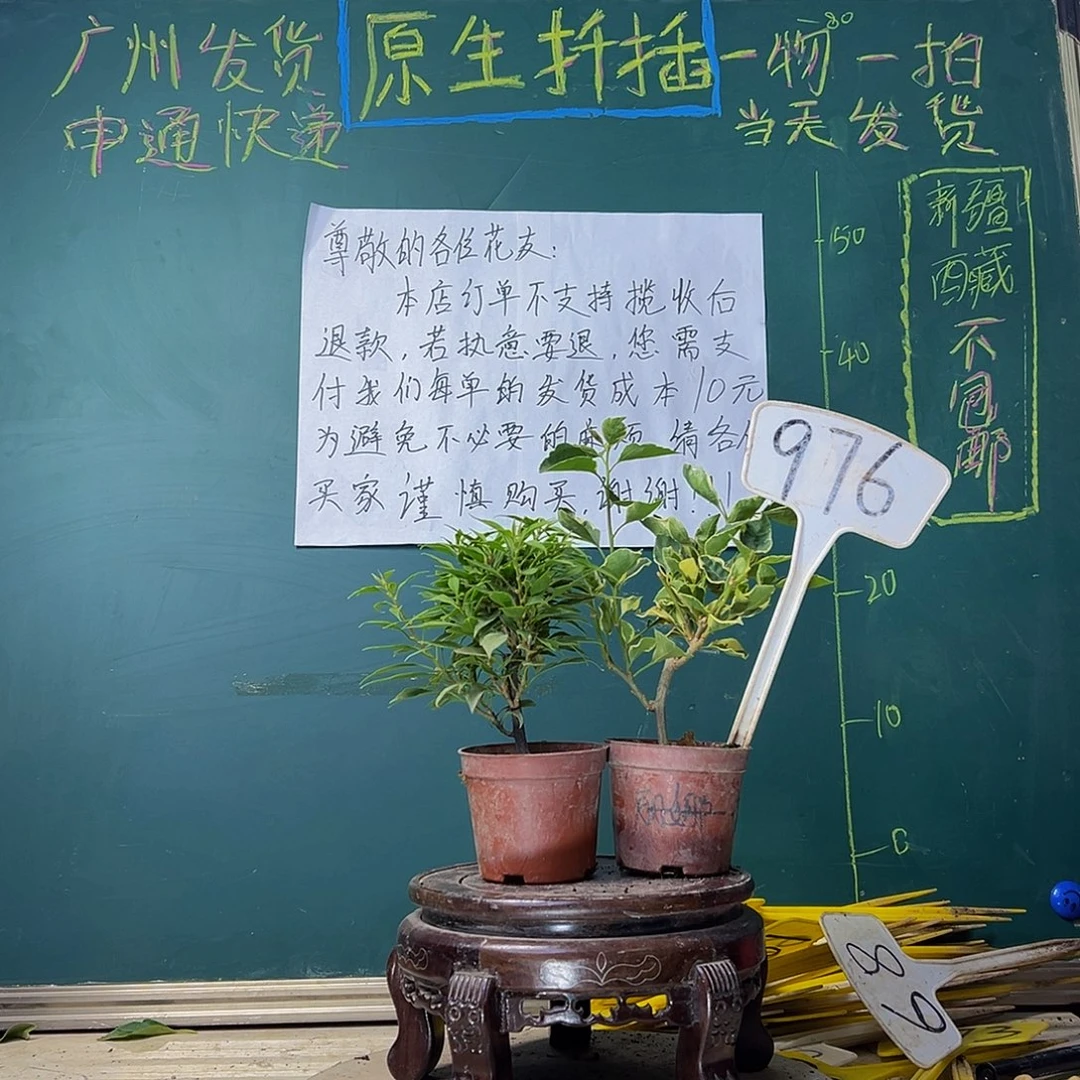 广州发货
申通快递
原生扦插
一物一拍
当天发货
80
50
40
20
10
0
新疆
西藏
不包邮
尊敬的各位花友:
本店订单不支持揽收后
退款,若执意要退,您需支
付我们每单的发货成本10元
为避免不必要的麻烦,请各位
买家谨慎购买,谢谢!!
976
68
3